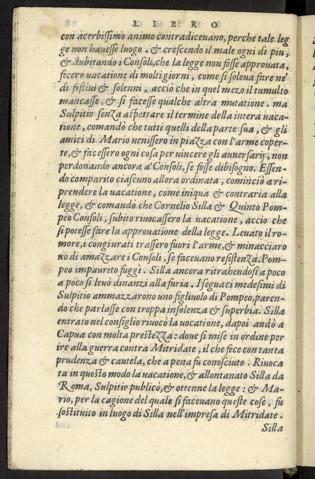 LIBRO
con acerbissimo animo contradicevano, perche tale leg
ge non havesse luogo. & crescendo il male ogni dì piu,
& dubitando i Consoli, che la legge non fosse approvata,
fecero vacatione di molti giorni, come si soleva fare ne'
dì festivi & solenni, acciò che in quel mezo il tumulto
mancasse, & si facesse qualche altra mutatione. ma
Sulpitio senza aspettare il termine della intera vaca-
tione, comandò che tutti quelli della parte sua, & gli
amici di Mario venissero in piazza con l'arme coper-
te, & facessero ogni cosa per vincere gli avversarij, non
perdonando ancora a' Consoli, se fosse dibisogno. Essen-
do comparito ciascuno allora ordinata, cominciò a ri-
prendere la vacatione, come iniqua & contraria alla
legge, & comandò che Cornelio Silla & Quinto Pom-
peo Consoli, subito rivocassero la vacatione, accio che
si potesse fare la approvatione della legge. Levato il ro-
more, i congiurati trassero fuori l'arme, & minacciaro
no di amazzare i Consoli, se facevano resistenza. Pom-
peo impaurito fuggì. Silla ancora ritrahendosi a poco
a poco si levò dinanzi alla furia. I seguaci medesimi di
Sulpitio ammazzarono uno figliuolo di Pompeo, paren-
do che parlasse con troppa insolenza & superbia. Silla
entrato nel consiglio rivocò la vocatione, da poi andò a
Capua con molta prestezza: dove si mise in ordine per
ire alla guerra contra Mitridate, il che fece con tanta
prudenza & cautela, che a pena fu conosciuto. Rivoca
ta in questo modo la vacatione, & allontanato Silla da
Roma, Sulpitio publicò, & ottenne la legge: & Ma-
rio, per la cagione del quale si facevano queste cose, fu
sostituito in luogo di Silla nell'impresa di Mitridate.
Silla